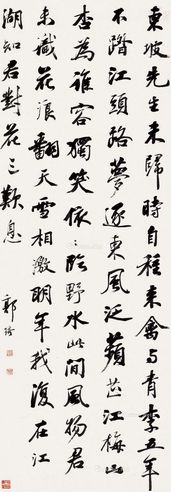 東坡先生未歸時自種来禽与青李五年
不踏江頭路夢逐東風泛蘋芷江梅山
杏為誰容獨笑依：臨野水此間風物君
未識花浪翻天雪相激明年我復在江
湖知君對花三歎息
郭